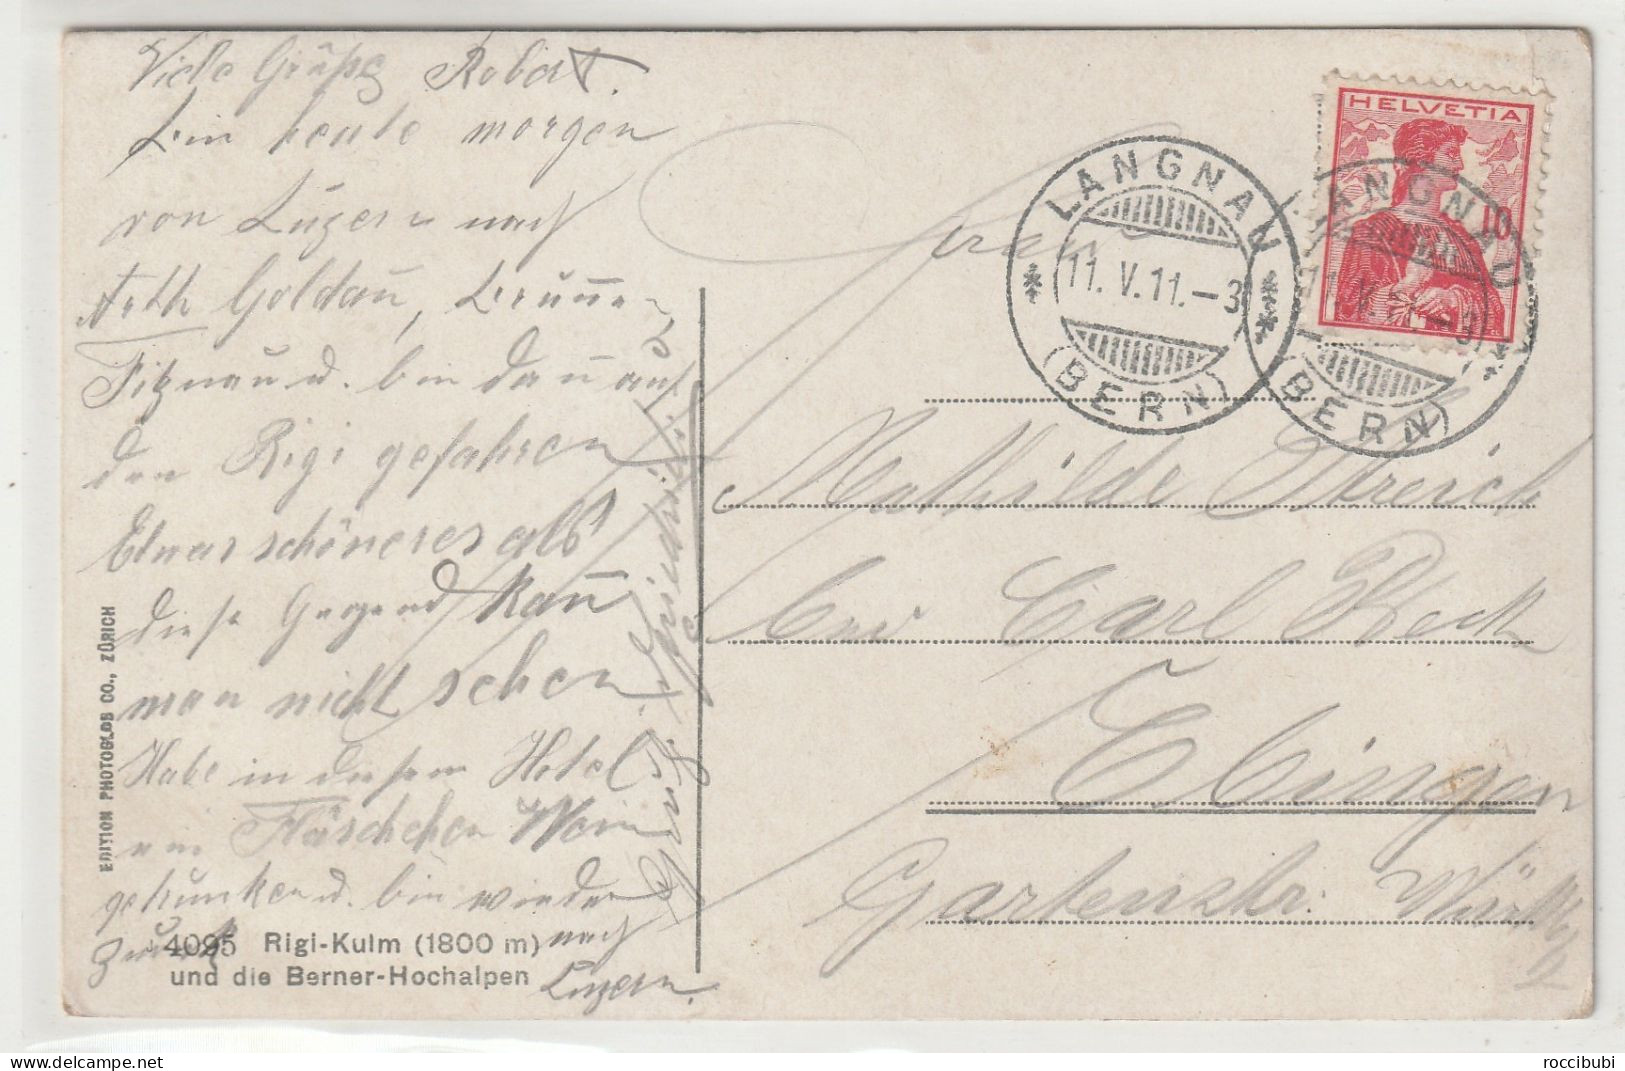 Viele Grüße Robert.
bin heute morgen
von Luzern nach
Arth Goldau, Brunnen,
Fitznau u. bin dan auf
den Rigi gefahren
Etwas schöneres als
diese Gegend kann
man nicht sehen
Habe in diesem Hotel
ein Fläschchen Wein
getrunken u. bin wieder
zurück nach
Luzern.
HELVETIA
10
LANGNAU
11. V. 11. - 3
(BERN)
LANGNAU
11. V. 11. - 3
(BERN)
Mathilde Streich
bei Carl Beck
Ebingen
Gartenstr. Württbg
EDITION PHOTOGLOB CO., ZÜRICH
4095 Rigi-Kulm (1800 m)
und die Berner-Hochalpen
roccibubi